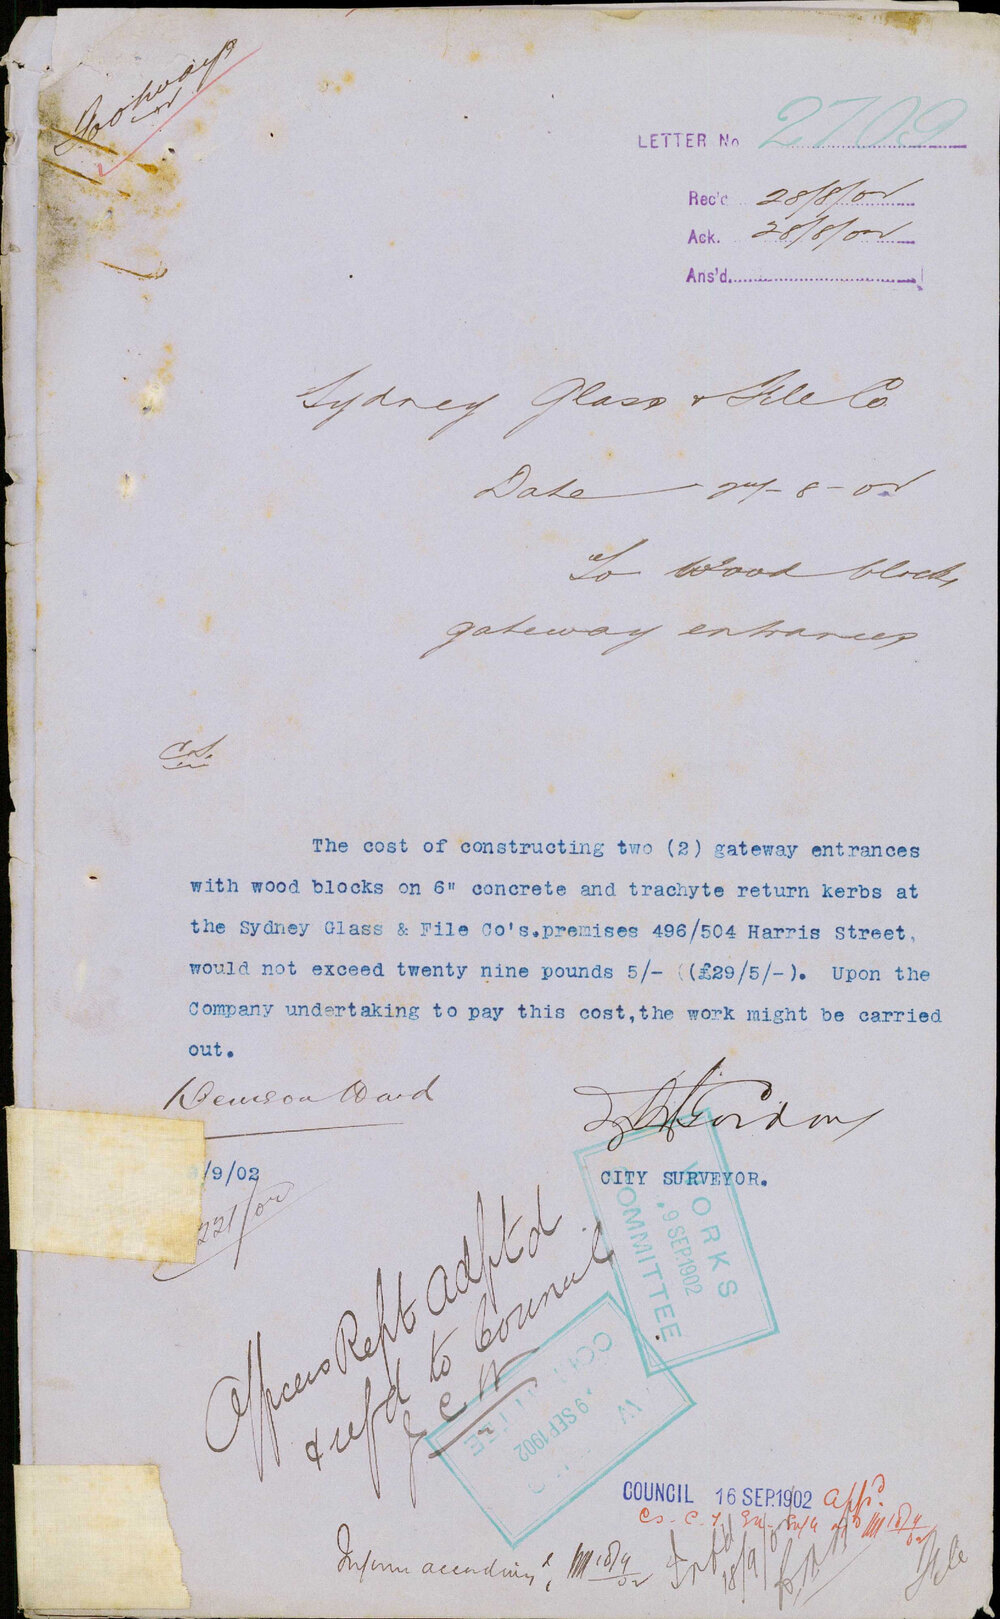 Footways
LETTER No 2709
Rec'd 28/8/02
Ack. 28/8/02
Ans'd.
Sydney Glass & Tile Co
Date 27-8-02
To Wood block
gateway entrances
C.S.
The cost of constructing two (2) gateway entrances
with wood blocks on 6" concrete and trachyte return kerbs at
the Sydney Glass & File Co's.premises 496/504 Harris Street,
would not exceed twenty nine pounds 5/- ((£29/5/-). Upon the
Company undertaking to pay this cost,the work might be carried
out.
Denison Ward
CITY SURVEYOR.
/9/02
221/02
WORKS
9 SEP.1902
COMMITTEE
Officers Rept adptd
& refd to Council
9 SEP 1902
COUNCIL 16 SEP.1902 appd.
Inform accordingly
18/9
File